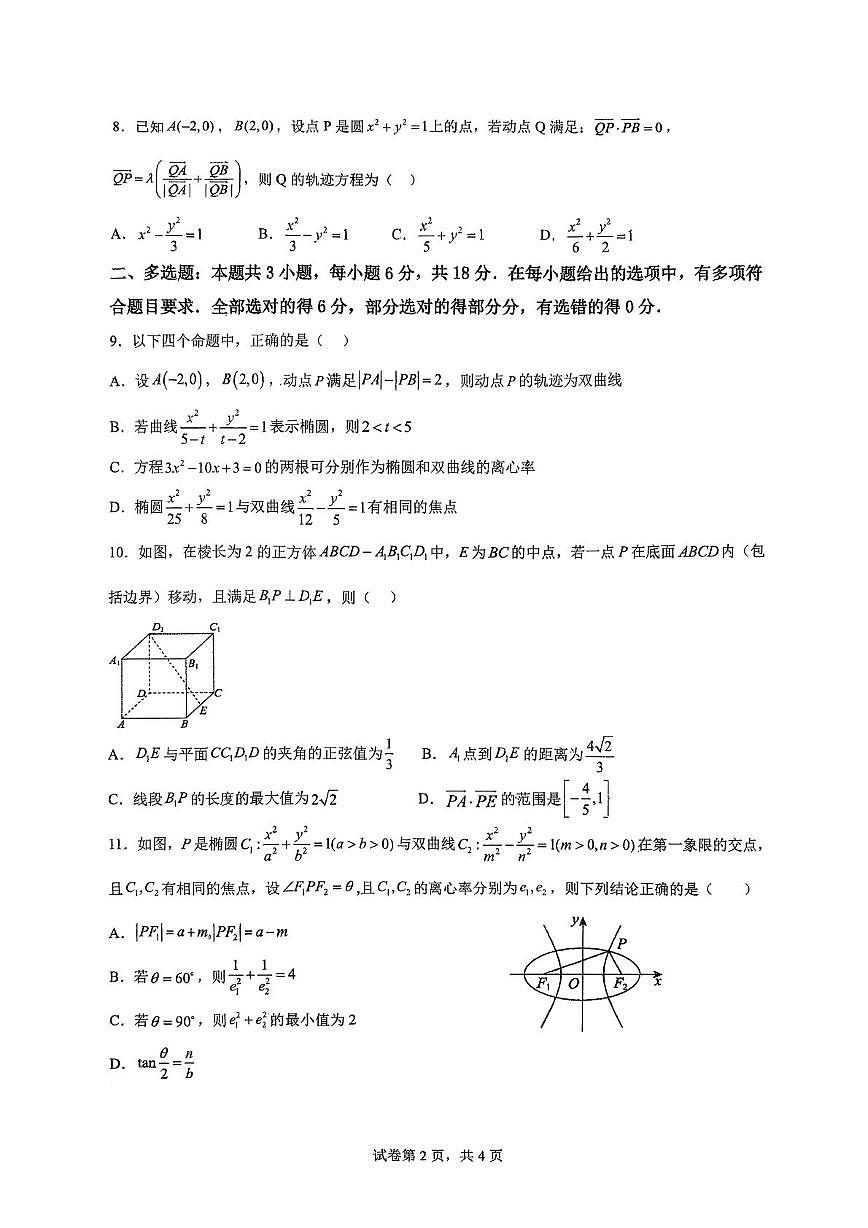 8．已知 A(−2,0)，B(2,0)，设点 P 是圆 x² + y² =1上的点，若动点 Q 满足：QP·PB = 0，
QP = λ(QA/|QA| + QB/|QB|)，则 Q 的轨迹方程为（ ）
A．x² − y²/3 = 1 B．x²/3 − y² = 1 C．x²/5 + y² = 1 D．x²/6 + y²/2 = 1
二、多选题：本题共 3 小题，每小题 6 分，共 18 分．在每小题给出的选项中，有多项符
合题目要求．全部选对的得 6 分，部分选对的得部分分，有选错的得 0 分．
9．以下四个命题中，正确的是（ ）
A．设 A(−2,0)，B(2,0)，动点 P 满足||PA|−|PB||= 2，则动点 P 的轨迹为双曲线
B．若曲线 x²/(5−t) + y²/(t−2) = 1 表示椭圆，则 2 < t < 5
C．方程3x² −10x + 3 = 0 的两根可分别作为椭圆和双曲线的离心率
D．椭圆 x²/25 + y²/8 = 1与双曲线 x²/12 − y²/5 = 1有相同的焦点
10．如图，在棱长为 2 的正方体 ABCD − A₁B₁C₁D₁ 中，E 为 BC 的中点，若一点 P 在底面 ABCD 内（包
括边界）移动，且满足 B₁P ⊥ D₁E，则（ ）
D₁ C₁
A₁ B₁
D C
E
A B
A．D₁E 与平面 CC₁D₁D 的夹角的正弦值为 1/3 B．A₁ 点到 D₁E 的距离为 4√2/3
C．线段 B₁P 的长度的最大值为 2√2 D．PA·PE 的范围是[−4/5,1]
11．如图，P 是椭圆 C₁ : x²/a² + y²/b² = 1(a > b > 0) 与双曲线 C₂ : x²/m² − y²/n² = 1(m > 0,n > 0) 在第一象限的交点，
且 C₁,C₂ 有相同的焦点，设 ∠F₁PF₂ = θ ,且 C₁,C₂ 的离心率分别为 e₁,e₂，则下列结论正确的是（ ）
A．|PF₁| = a + m,|PF₂| = a − m
B．若 θ = 60°，则 1/e₁² + 1/e₂² = 4
C．若 θ = 90°，则 e₁² + e₂² 的最小值为 2
D．tan θ/2 = n/b
y
P
F₁ O F₂ x
试卷第 2 页，共 4 页